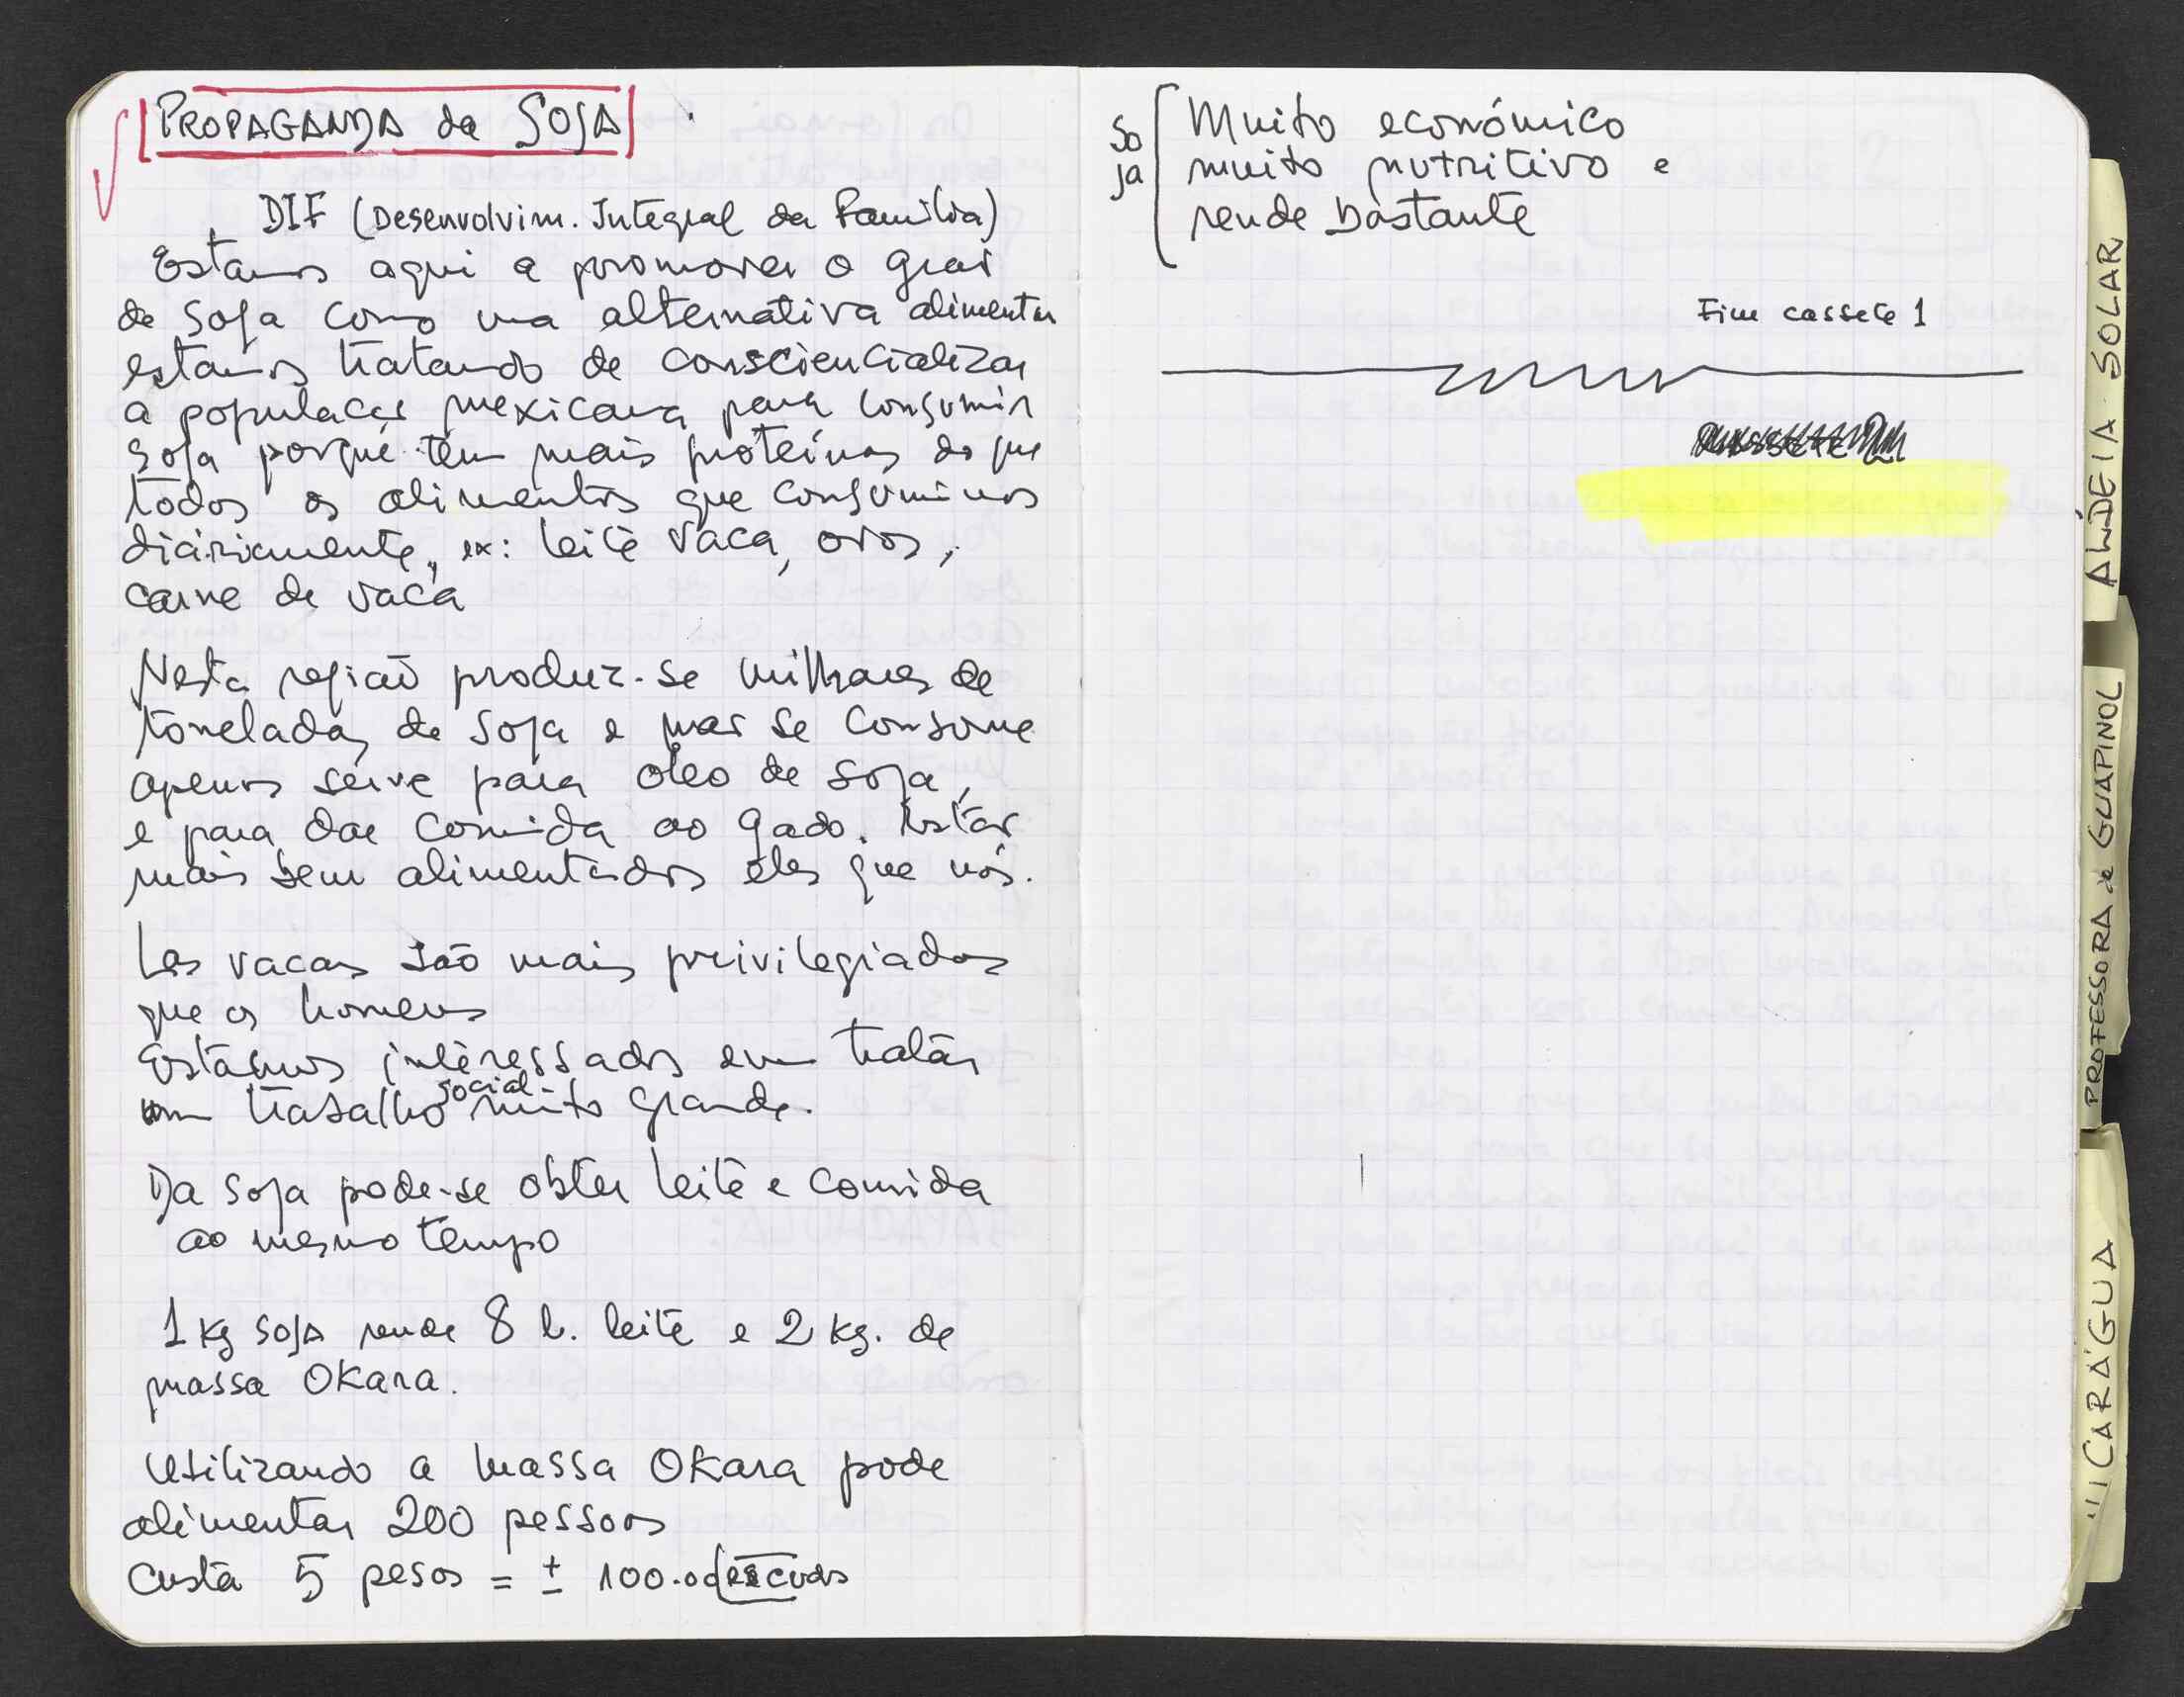 PROPAGANDA da SOJA
DIF (Desenvolvim. Integral da Família)
Estamos aqui a promover o grão
de soja como uma alternativa alimentar
estamos tratando de consciencializar
a população mexicana para consumir
soja porque têm mais proteínas do que
todos os alimentos que consumimos
diáriamente, ex: leite vaca, ovos,
carne de vaca
Nesta região produz-se milhares de
toneladas de soja e mas se consome
apenas serve para oleo de soja,
e para dar comida ao gado. Estar
mais bem alimentados eles que nós.
Las vacas são mais privilegiadas
que os homens
Estamos interessados em tratar
um trabalho social muito grande.
Da soja pode-se obter leite e comida
ao mesmo tempo
1 Kg SOJA rende 8 l. leite e 2 Kg. de
massa OKara.
Utilizando a massa OKara pode
alimentar 200 pessoas
Custa 5 pesos = ± 100.00 escudos
So
ja
Muito económico
muito nutritivo e
rende bastante
Fim cassete 1
ALDEIA SOLAR
PROFESSORA de GUAPINOL
NICARÁGUA